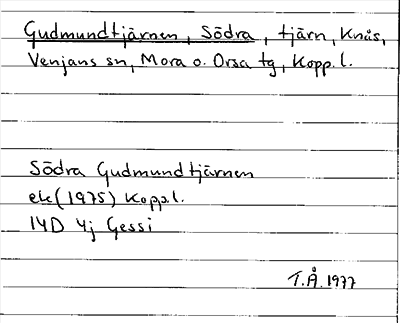 Gudmundtjärnen, Södra, tjärn, Knås,
Venjans sn, Mora o. Orsa tg, Kopp. l.
Södra Gudmundtjärnen
ek (1975) Kopp.l.
14D 4j Gessi
T.Å. 1977